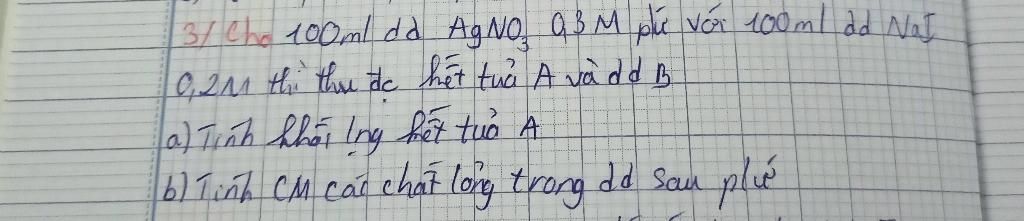 3/ Cho 100ml dd AgNO₃ 0,3M pứ với 100ml dd NaI
0,2M thì thu đc kết tuả A và dd B
a) Tính khối lng kết tuả A
b) Tính CM các chất lỏng trong dd sau pứ